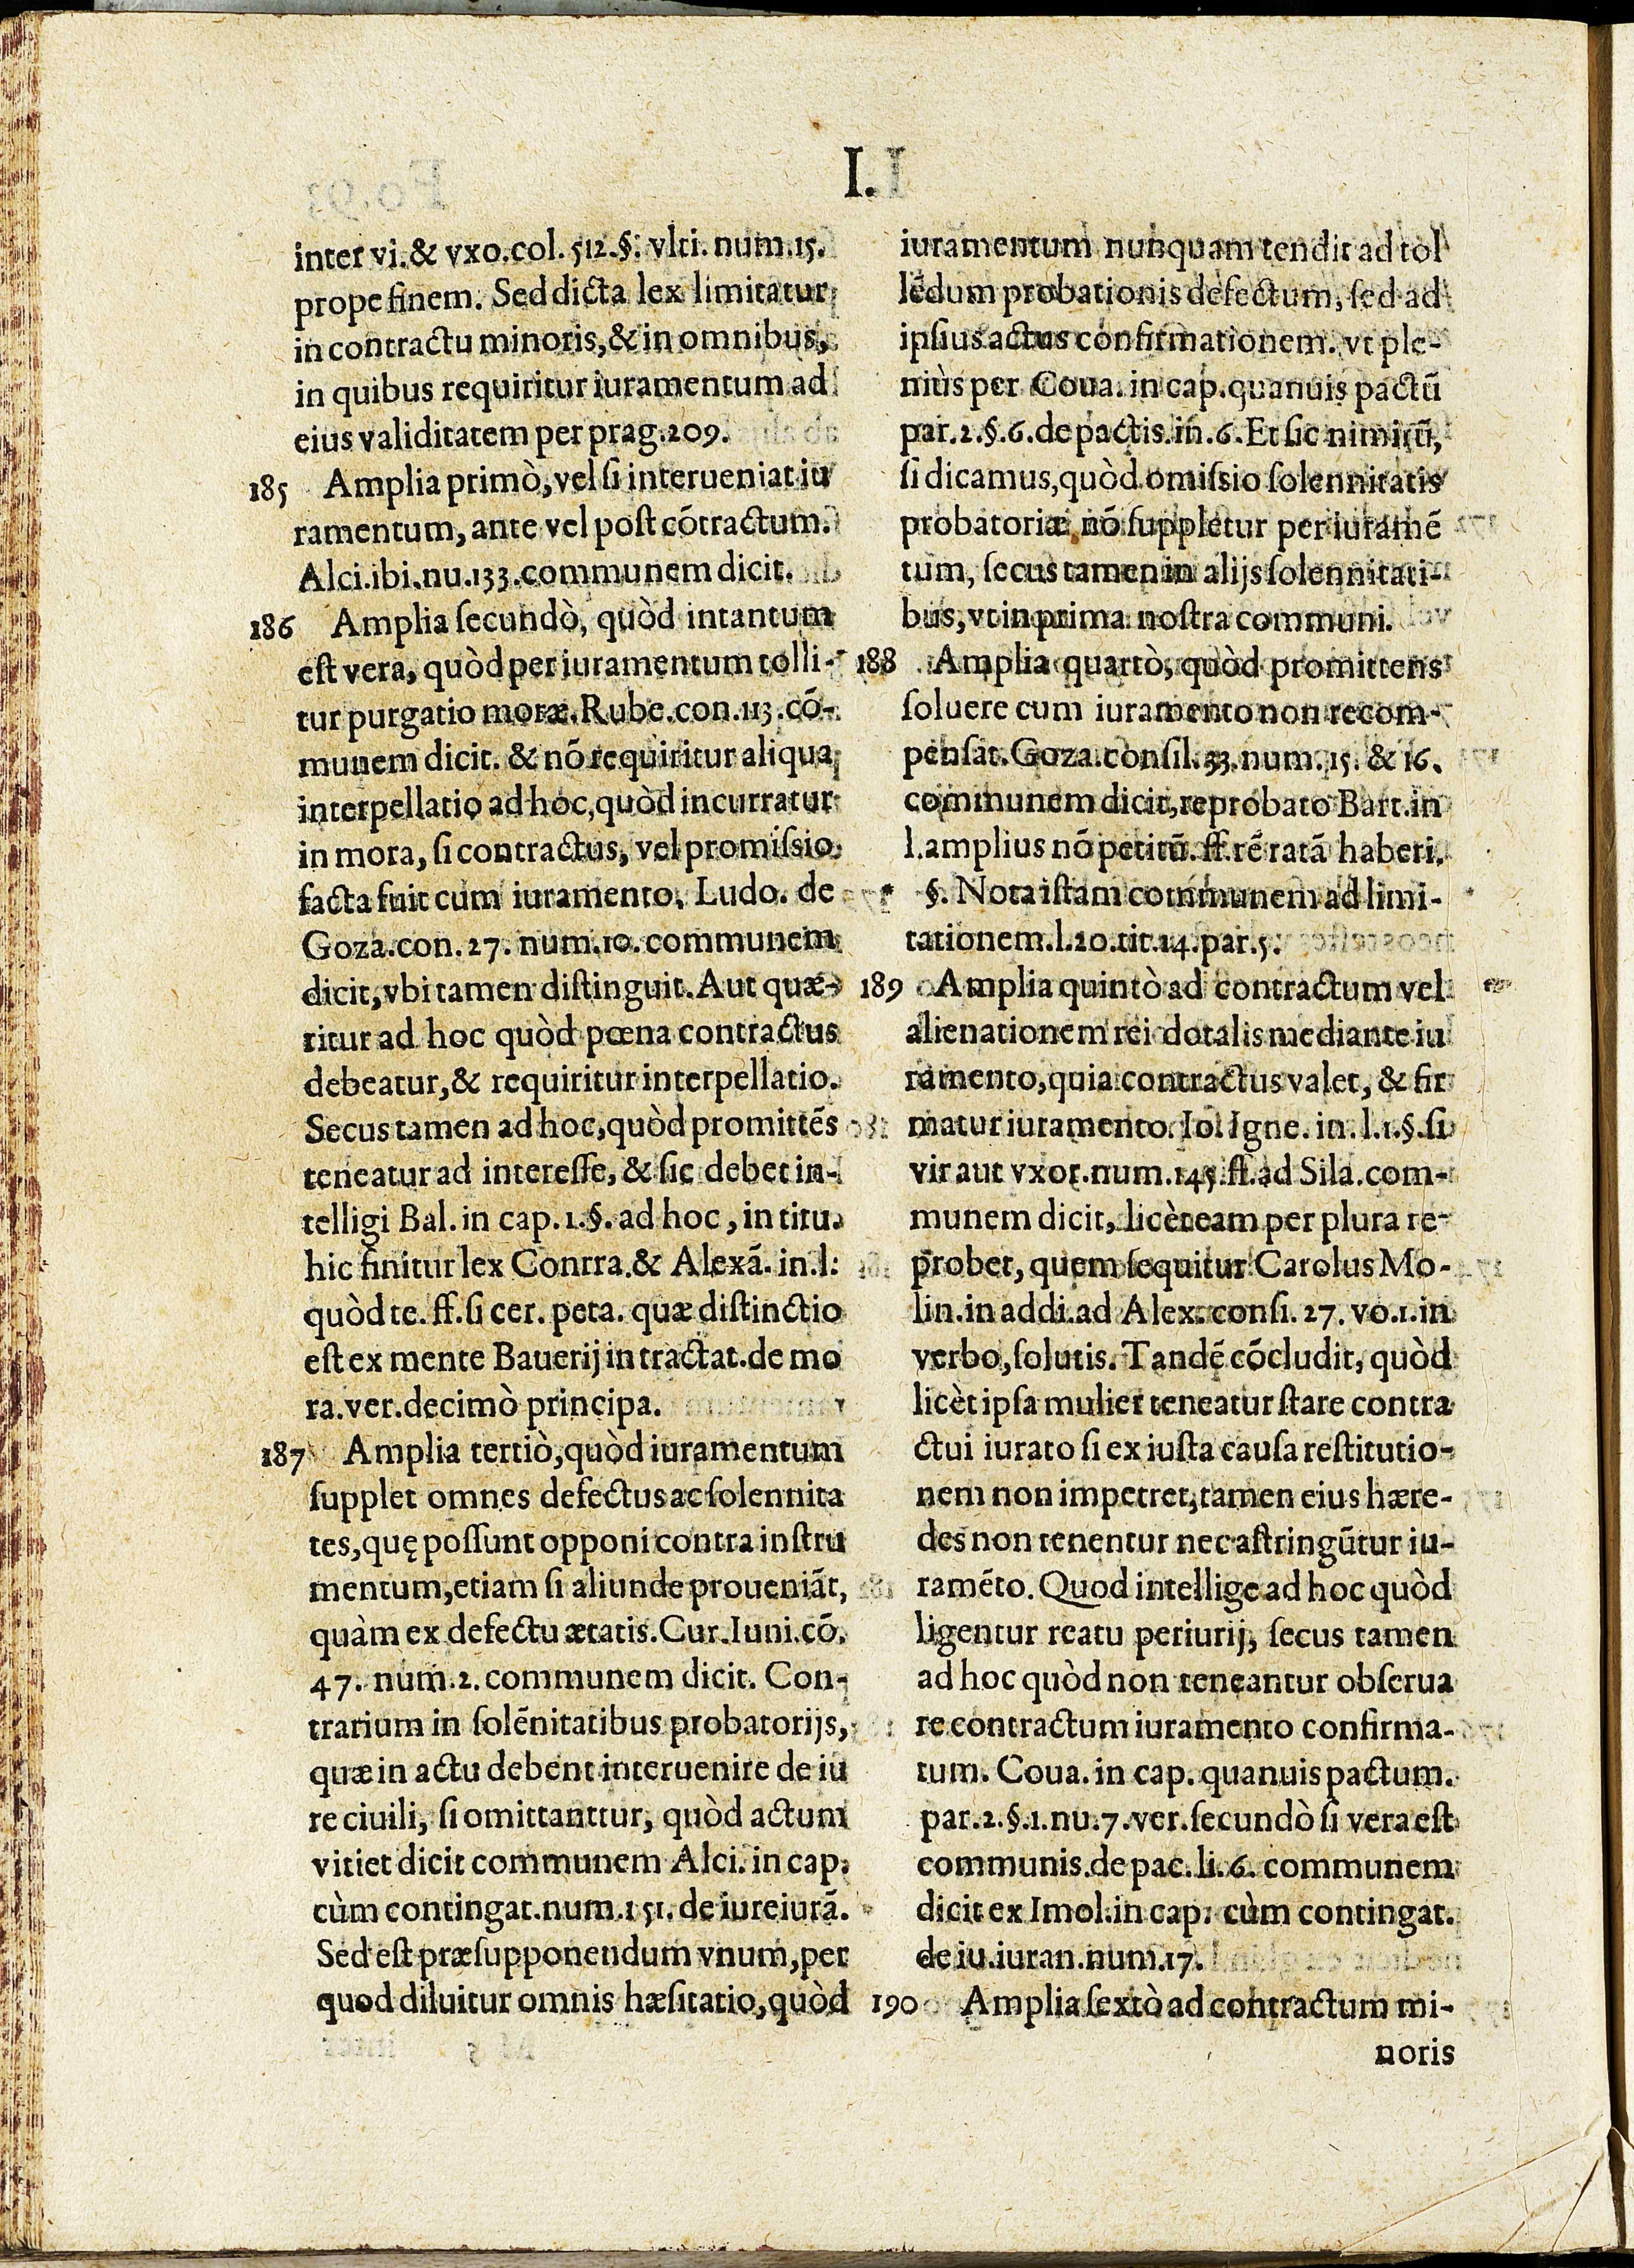 I.
inter vi. & vxo. col. 512. §. vlti. num. 15.
prope finem. Sed dicta lex limitatur
in contractu minoris, & in omnibus,
in quibus requiritur iuramentum ad
eius validitatem per prag. 209.
185 Amplia primò, vel si interueniat iu
ramentum, ante vel post cõtractum.
Alci. ibi. nu. 133. communem dicit.
186 Amplia secundò, quòd intantum
est vera, quòd per iuramentum tolli-
tur purgatio moræ. Rube. con. 113. cõ-
munem dicit. & nõ requiritur aliqua
interpellatio ad hoc, quòd incurratur
in mora, si contractus, vel promissio
facta fuit cum iuramento. Ludo. de
Goza. con. 27. num. 10. communem
dicit, vbi tamen distinguit. Aut quæ-
ritur ad hoc quòd pœna contractus
debeatur, & requiritur interpellatio.
Secus tamen ad hoc, quòd promittẽs
teneatur ad interesse, & sic debet in-
telligi Bal. in cap. 1. §. ad hoc, in titu.
hic finitur lex Contra. & Alexã. in. l.
quòd te. ff. si cer. peta. quæ distinctio
est ex mente Bauerij in tractat. de mo
ra. ver. decimò principa.
187 Amplia tertiò, quòd iuramentum
supplet omnes defectus ac solennita
tes, quę possunt opponi contra instru
mentum, etiam si aliunde proueniãt,
quàm ex defectu ætatis. Cur. Iuni. cõ.
47. num. 2. communem dicit. Con-
trarium in solẽnitatibus probatorijs,
quæ in actu debent interuenire de iu
re ciuili, si omittanttur, quòd actum
vitiet dicit communem Alci. in cap.
cùm contingat. num. 151. de iureiurã.
Sed est præsupponendum vnum, per
quod diluitur omnis hæsitatio, quòd
iuramentum nunquam tendit ad tol
lẽdum probationis defectum, sed ad
ipsius actus confirmationem. vt ple-
niùs per Coua. in cap. quanuis pactũ
par. 2. §. 6. de pactis. in. 6. Et sic nimirũ,
si dicamus, quòd omissio solennitatis
probatoriæ nõ suppletur per iuramẽ
tum, secus tamen in alijs solennitati-
bus, vt in prima nostra communi.
188 Amplia quartò, quòd promittens
soluere cum iuramento non recom-
pensat. Goza. consil. 53. num. 15. & 16.
communem dicit, reprobato Bart. in
l. amplius nõ petitũ. ff. rẽ ratã haberi.
* §. Nota istam communem ad limi-
tationem. l. 20. tit. 14. par. 5.
189 Amplia quintò ad contractum vel
alienationem rei dotalis mediante iu
ramento, quia contractus valet, & fir
matur iuramento. Io. Igne. in. l. 1. §. si
vir aut vxor. num. 145. ff. ad Sila. com-
munem dicit, licèt eam per plura re-
probet, quem sequitur Carolus Mo-
lin. in addi. ad Alex. consi. 27. vo. 1. in
verbo, solutis. Tandẽ cõcludit, quòd
licèt ipsa mulier teneatur stare contra
ctui iurato si ex iusta causa restitutio-
nem non impetret, tamen eius hære-
des non tenentur nec astringũtur iu-
ramẽto. Quod intellige ad hoc quòd
ligentur reatu periurij, secus tamen
ad hoc quòd non teneantur obserua
re contractum iuramento confirma-
tum. Coua. in cap. quanuis pactum.
par. 2. §. 1. nu. 7. ver. secundò si vera est
communis. de pac. li. 6. communem
dicit ex Imol. in cap. cùm contingat.
de iu. iuran. num. 17.
190 Amplia sextò ad contractum mi-
noris